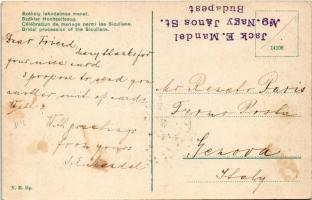 Székely lakodalmas menet.
Szekler Hochzeitszug.
Célébration de mariage parmi les Siculiens.
Bridal procession of the Siculians.
Jack E. Mandel
Vig. Nagy János St.
Budapest
14108
Dear Friend
many thanks for
your nice card
I propose to send you
another view of cards.
Well?
With greetings
from yours
J. E. Mandel
Renato Paris
Fermo Posta
Genova
Italy
N. M. Bp.